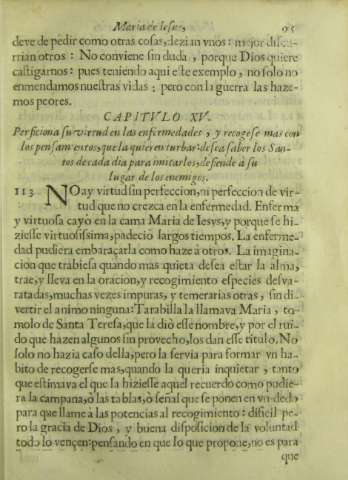 Maria de Iesus,
deve de pedir como otras cosas, dezian vnos: mejor discu-
rrian otros: No conviene sin duda, porque Dios quiere
castigarnos: pues teniendo aqui este exemplo, no solo no
enmendamos nuestras vidas; pero con la guerra las haze-
mos peores.
CAPITVLO XV.
Perficiona su virtud en las enfermedades, y recogese mas con
los pensamientos, que la quieren turbar: desea saber los San-
tos de cada dia para imitarlos, defende à su
lugar de los enemigos.
113 NO ay virtud sin perfeccion, ni perfeccion de vir-
tud que no crezca en la enfermedad. Enferma
y virtuosa cayò en la cama Maria de Iesvs, y porque se hi-
ziesse virtuosissima, padeciò largos tiempos. La enferme-
dad pudiera embaraçarla como haze à otros. La imagina-
cion que trabiesa quando mas quieta desea estar la alma,
trae, y lleva en la oracion, y recogimiento especies desva-
ratadas, muchas vezes impuras, y temerarias otras, sin di-
vertir el animo ninguna: Tarabilla la llamava Maria, to-
molo de Santa Teresa, que la diò esse nombre, y por el rui-
do que hazen algunos sin provecho, los dan esse titulo. No
solo no hazia caso della, pero la servia para formar vn ha-
bito de recogerse mas, quando la queria inquietar, tanto
que estimava el que la hiziesse aquel recuerdo como pudie-
ra la campana, ò las tablas, ò señal que se ponen en vn dedo,
para que llame à las potencias al recogimiento: dificil pe-
ro la gracia de Dios, y buena disposicion de la voluntad
todo lo vençen: pensando en que lo que propone, no es para
que